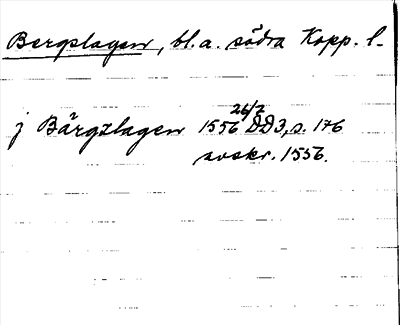 Bergslagen, bl.a. södra Kopp. l.
j Bärgzlagen 1556 26/7 DD3, s. 176
avskr. 1556.